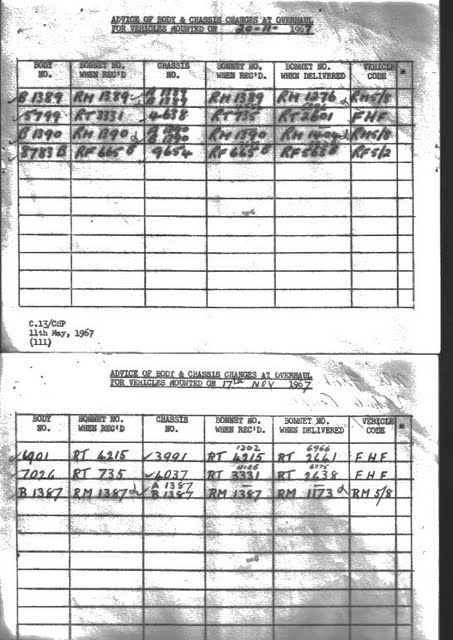 ADVICE OF BODY & CHASSIS CHANGES AT OVERHAUL
FOR VEHICLES MOUNTED ON 20-11- 1967
BODY NO. BONNET NO. WHEN REC'D CHASSIS NO. BONNET NO. WHEN REC'D. BONNET NO. WHEN DELIVERED VEHICLE CODE *
B1389 RM 1389 A 1389 B 1389 RM 1389 RM 1276 RM5/8
5799 RT 3331 4638 RT 735 RT 2601 FHF
B1390 RM 1390 A 1390 B 1390 RM 1390 RM 1404 RM5/8
8783 B RF 665 B 9654 RF 665 B RF 565 B RF5/2
C.13/CHP
11th May, 1967
(111)
ADVICE OF BODY & CHASSIS CHANGES AT OVERHAUL
FOR VEHICLES MOUNTED ON 17th NOV 1967
BODY NO. BONNET NO. WHEN REC'D CHASSIS NO. BONNET NO. WHEN REC'D. BONNET NO. WHEN DELIVERED VEHICLE CODE *
1202 6966
6901 RT 4215 3991 RT 4215 RT 2441 FHF
6775
7026 RT 735 4037 RT 3331 RT 2638 FHF
B1387 RM 1387 A 1387 B 1387 RM 1387 RM 1173 RM 5/8